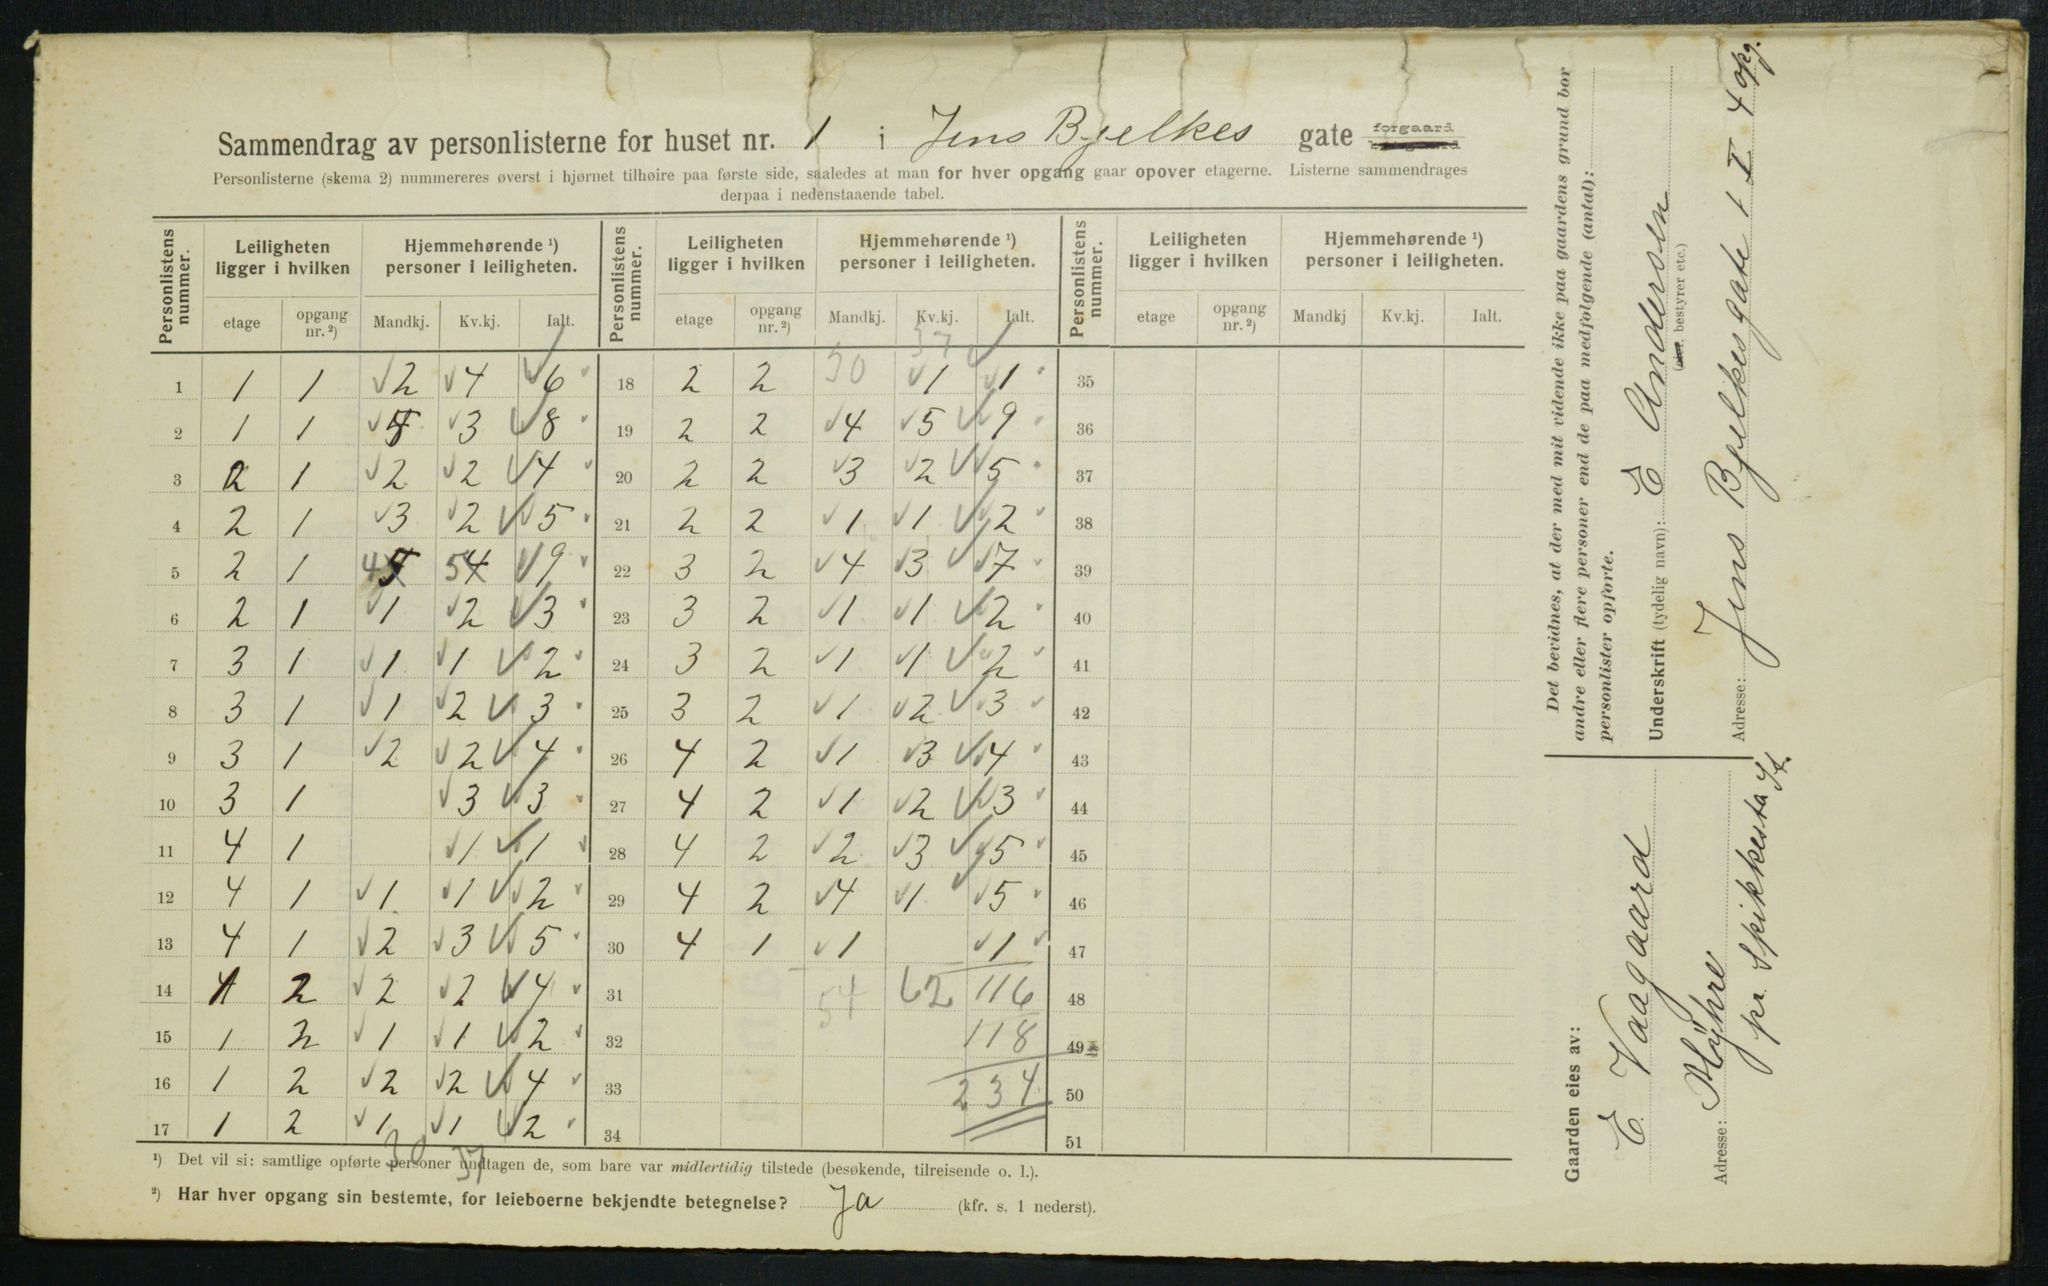 Sammendrag av personlisterne for huset nr. 1 i Jens Bjelkes gate forgaard
Personlisterne (skema 2) nummereres øverst i hjørnet tilhøire paa første side, saaledes at man for hver opgang gaar opover etagerne. Listerne sammendrages
derpaa i nedenstaaende tabel.
Personlistens nummer. Leiligheten ligger i hvilken Hjemmehørende ¹) personer i leiligheten. Personlistens nummer. Leiligheten ligger i hvilken Hjemmehørende ¹) personer i leiligheten. Personlistens nummer. Leiligheten ligger i hvilken Hjemmehørende ¹) personer i leiligheten.
etage opgang nr. ²) Mandkj. Kv.kj. Ialt. etage opgang nr. ²) Mandkj. Kv.kj. Ialt. etage opgang nr. ²) Mandkj Kv.kj. Ialt.
30 37
1 1 1 2 4 6 18 2 2 1 1 35
2 1 1 5 3 8 19 2 2 4 5 9 36
3 2 1 2 2 4 20 2 2 3 2 5 37
4 2 1 3 2 5 21 2 2 1 1 2 38
5 2 1 4 5 5 4 9 22 3 2 4 3 7 39
6 2 1 1 2 3 23 3 2 1 1 2 40
7 3 1 1 1 2 24 3 2 1 1 2 41
8 3 1 1 2 3 25 3 2 1 2 3 42
9 3 1 2 2 4 26 4 2 1 3 4 43
10 3 1 3 3 27 4 2 1 2 3 44
11 4 1 1 1 28 4 2 2 3 5 45
12 4 1 1 1 2 29 4 2 4 1 5 46
13 4 1 2 3 5 30 4 1 1 1 47
14 1 2 2 2 4 31 54 62 116 48
15 1 2 1 1 2 32 118 49
16 1 2 2 2 4 33 234 50
17 1 2 1 1 2 34 51
30 37
¹) Det vil si: samtlige opførte personer undtagen de, som bare var midlertidig tilstede (besøkende, tilreisende o. l.).
²) Har hver opgang sin bestemte, for leieboerne bekjendte betegnelse? Ja (kfr. s. 1 nederst).
Det bevidnes, at der med mit vidende ikke paa gaardens grund bor
andre eller flere personer end de paa medfølgende (antal):
personlister opførte.
Underskrift (tydelig navn): E Andersen
(eier, bestyrer etc.)
Adresse: Jens Bjelkesgate 1 I 4 opg.
Gaarden eies av:
E. Vaagaard
Adresse: Myhre
pr. Spikkesta St.